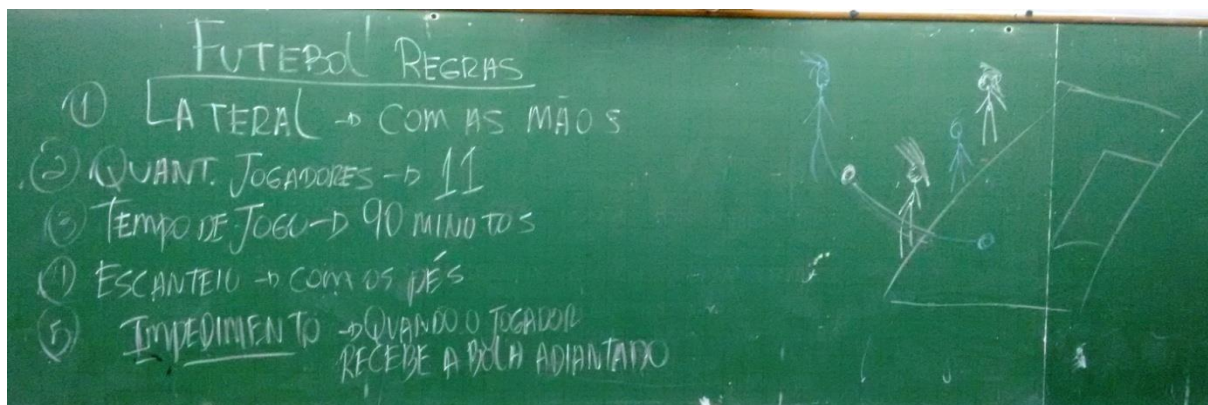 FUTEBOL REGRAS
① LATERAL → COM AS MÃOS
② QUANT. JOGADORES → 11
③ TEMPO DE JOGO → 90 MINUTOS
④ ESCANTEIO → COM OS PÉS
⑤ IMPEDIMENTO → QUANDO O JOGADOR
RECEBE A BOLA ADIANTADO